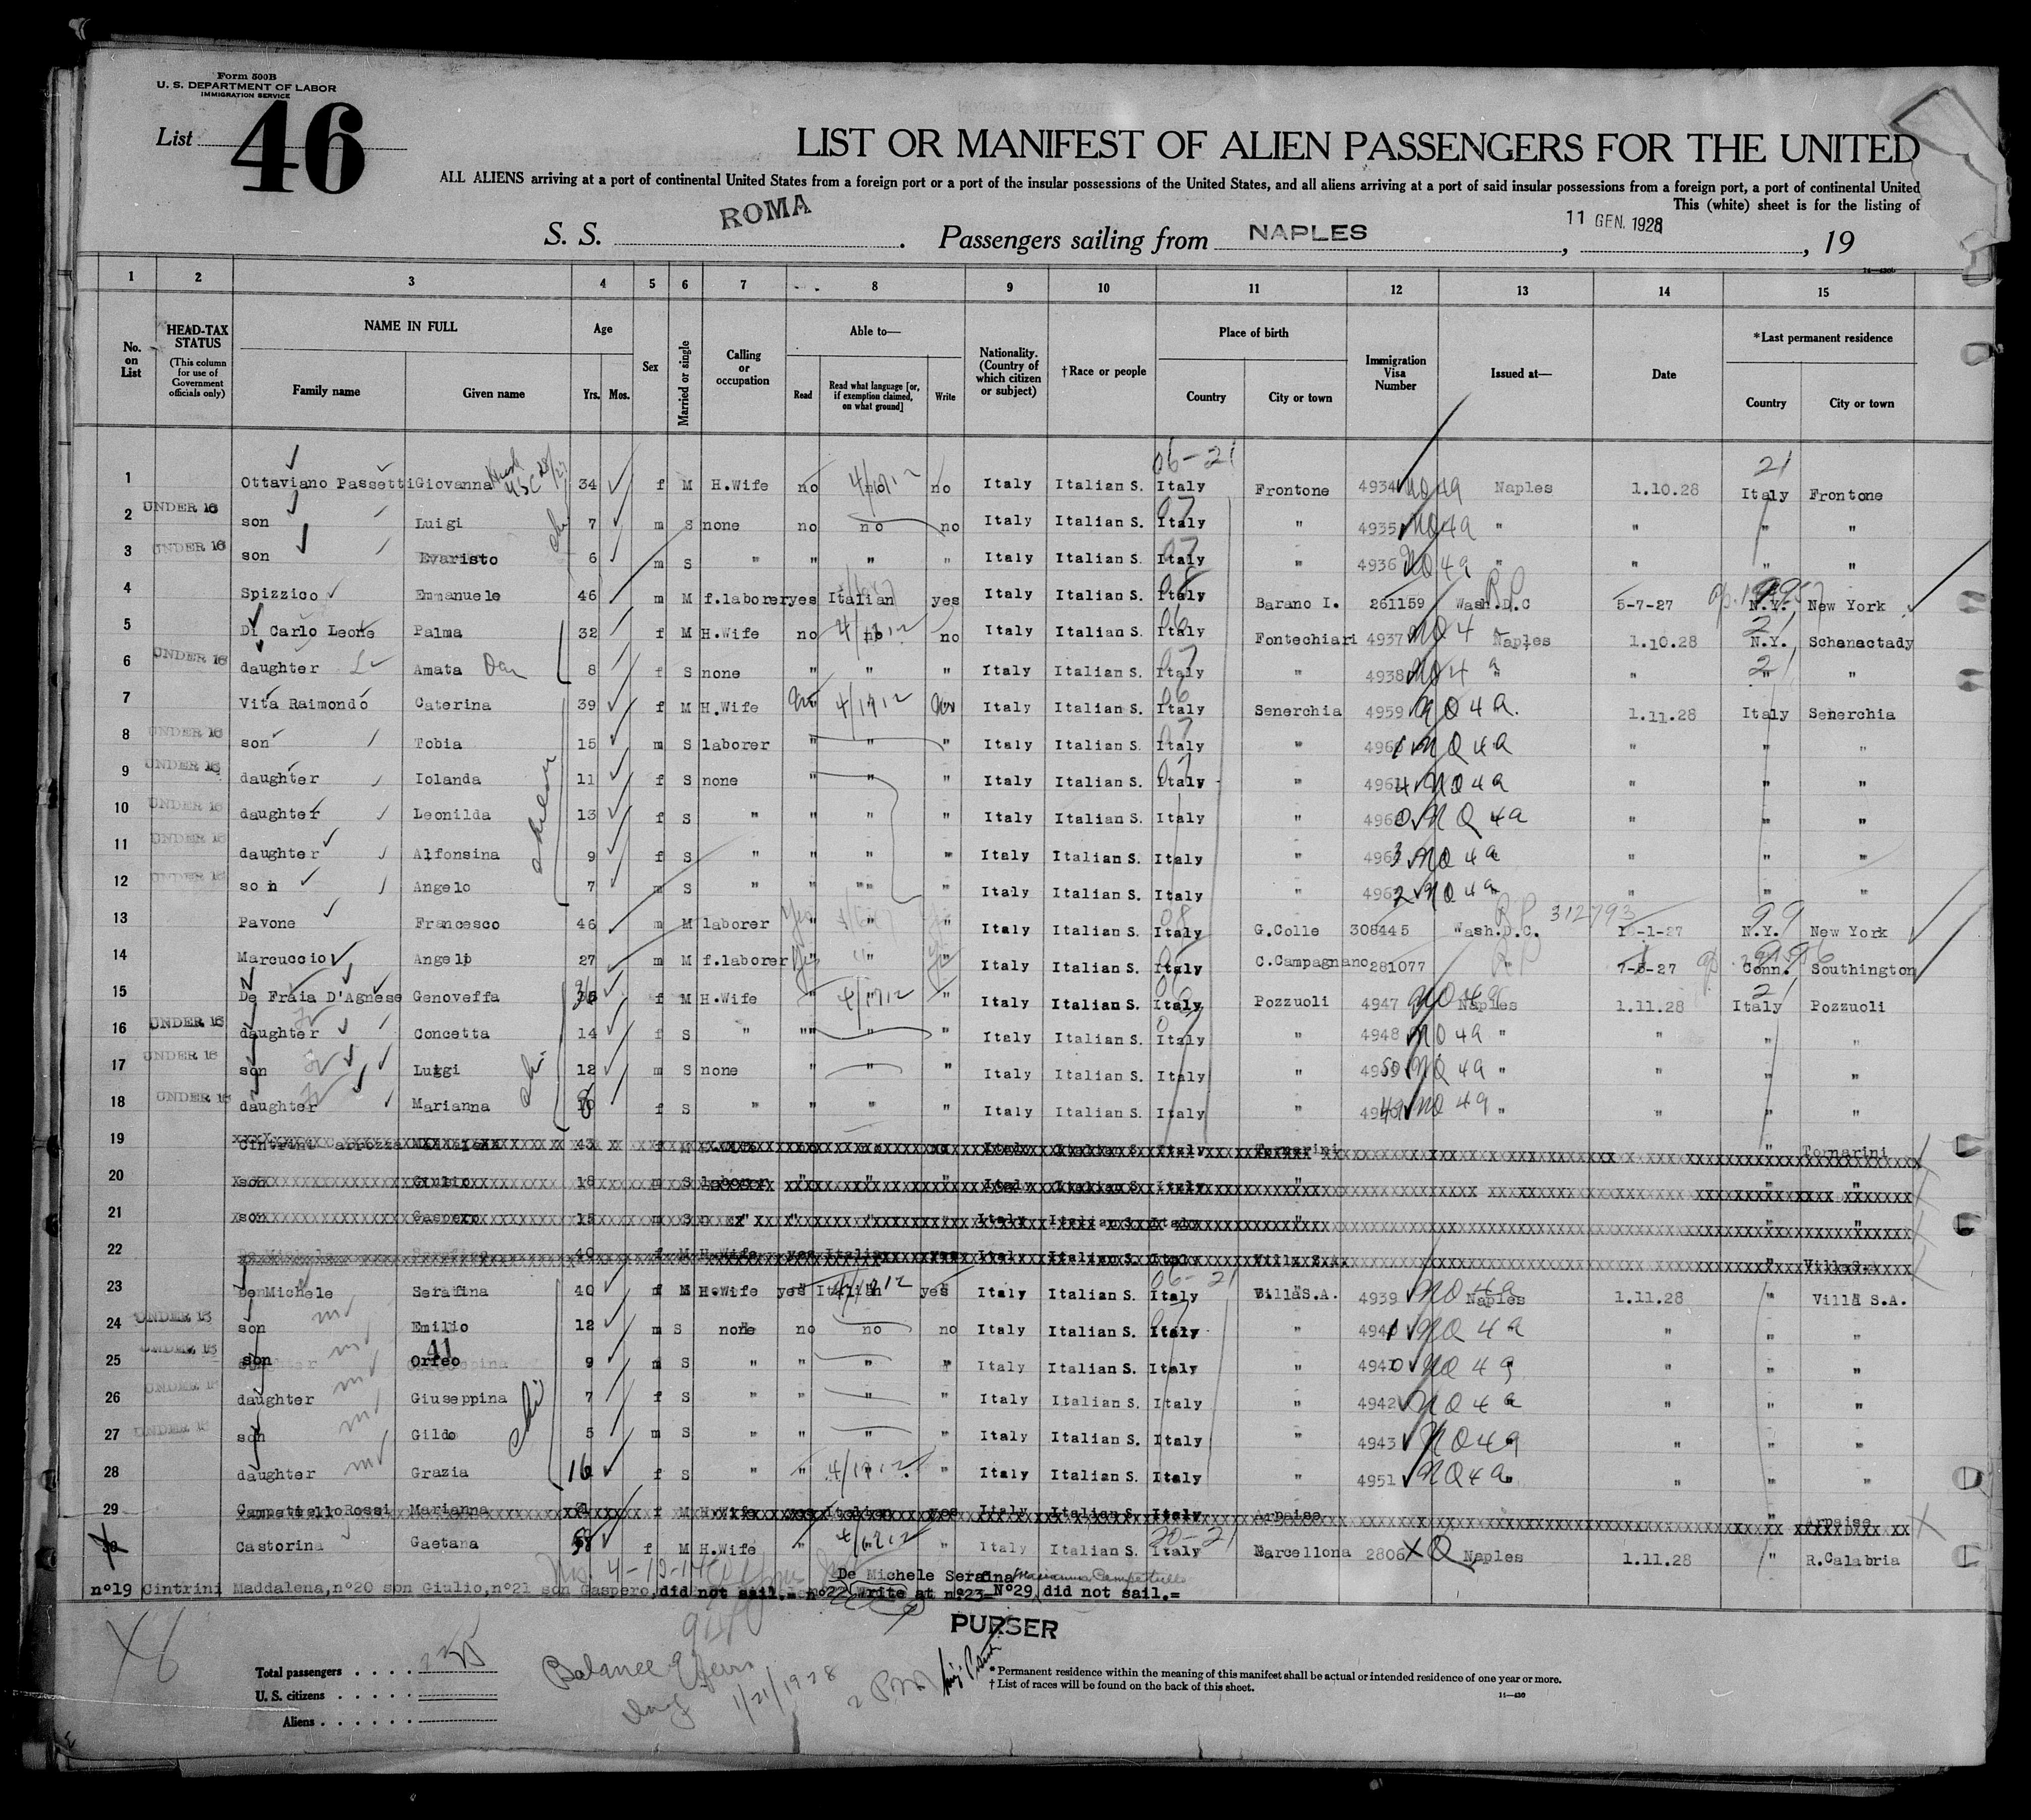 Form 500B
U. S. DEPARTMENT OF LABOR
IMMIGRATION SERVICE
List 46
LIST OR MANIFEST OF ALIEN PASSENGERS FOR THE UNITED
ALL ALIENS arriving at a port of continental United States from a foreign port or a port of the insular possessions of the United States, and all aliens arriving at a port of said insular possessions from a foreign port, a port of continental United
This (white) sheet is for the listing of
S. S. ROMA. Passengers sailing from NAPLES, 11 GEN. 1928, 19
14—430b
1 2 3 4 5 6 7 8 9 10 11 12 13 14 15
No. on List
HEAD-TAX STATUS (This column for use of Government officials only)
NAME IN FULL
Family name Given name
Age
Yrs. Mos.
Sex
Married or single
Calling or occupation
Able to—
Read Read what language [or, if exemption claimed, on what ground] Write
Nationality. (Country of which citizen or subject)
†Race or people
Place of birth
Country City or town
Immigration Visa Number
Issued at—
Date
*Last permanent residence
Country City or town
06-21 21
1 Ottaviano Passetti Giovanna 34 f M H.Wife no no no Italy Italian S. Italy Frontone 4934 NQ 4a Naples 1.10.28 Italy Frontone
2 UNDER 16 son Luigi 7 m S none no no no Italy Italian S. Italy " 4935 NQ 4a " " " "
3 UNDER 16 son Evaristo 6 m S " " " " Italy Italian S. Italy " 4936 NQ 4a " " " "
4 Spizzico Emmanuele 46 m M f.laborer yes Italian yes Italy Italian S. Italy Barano I. 261159 Wash.D.C 5-7-27 N.Y. New York
5 Di Carlo Leone Palma 32 f M H.Wife no no no Italy Italian S. Italy Fontechiari 4937 NQ 4 Naples 1.10.28 N.Y. Schanactady
6 UNDER 16 daughter Amata 8 f S none " " " Italy Italian S. Italy " 4938 NQ 4a " " " "
7 Vita Raimondo Caterina 39 f M H.Wife 4/1912 Italy Italian S. Italy Senerchia 4959 NQ 4a. 1.11.28 Italy Senerchia
8 UNDER 16 son Tobia 15 m S laborer " " " Italy Italian S. Italy " 4961 NQ 4a " " "
9 UNDER 16 daughter Iolanda 11 f S none " " " Italy Italian S. Italy " 4964 NQ 4a " " "
10 UNDER 16 daughter Leonilda 13 f S " " " " Italy Italian S. Italy " 4960 NQ 4a " " "
11 UNDER 16 daughter Alfonsina 9 f S " " " " Italy Italian S. Italy " 4963 NQ 4a " " "
12 UNDER 16 son Angelo 7 m S " " " " Italy Italian S. Italy " 4962 NQ 4a " " "
13 Pavone Francesco 46 m M laborer Yes " " " Italy Italian S. Italy G.Colle 308445 Wash.D.C. 312793 N.Y. New York
14 Marcuccio Angelo 27 m M f.laborer " " " Italy Italian S. Italy C.Campagnano 281077 " 7-8-27 Conn. Southington
15 De Fraia D'Agnese Genoveffa f M H.Wife " 4/1912 " Italy Italian S. Italy Pozzuoli 4947 NQ 4a Naples 1.11.28 Italy Pozzuoli
16 UNDER 16 daughter Concetta 14 f S " " " " Italy Italian S. Italy " 4948 NQ 4a " " " "
17 UNDER 16 son Luigi 12 m S none " " " Italy Italian S. Italy " 4950 NQ 4a " " " "
18 UNDER 16 daughter Marianna f S " " " " Italy Italian S. Italy " 4949 NQ 4a " " " "
19 Cintrini 43 f M Italy Italian S. Italy Tornarini " Tornarini
20 son Giulio 18 m S laborer " " " Italy Italian S. Italy " " "
21 son Gaspero 15 m S " " " " Italy Italian S. Italy " " "
22 De Michele 40 f M H.Wife yes Italian yes Italy Italian S. Italy Villa S.A. " Villa S.A.
06-21
23 De Michele Serafina 40 f M H.Wife yes Italian yes Italy Italian S. Italy Villa S.A. 4939 NQ 4a Naples 1.11.28 " Villa S.A.
24 UNDER 16 son Emilio 12 m S none no no no Italy Italian S. Italy " 4941 NQ 4a " " "
25 UNDER 16 son Orfeo 9 m S " " " " Italy Italian S. Italy " 4940 NQ 4a " " "
26 UNDER 16 daughter Giuseppina 7 f S " " " " Italy Italian S. Italy " 4942 NQ 4a " " "
27 UNDER 16 son Gildo 5 m S " " " " Italy Italian S. Italy " 4943 NQ 4a " " "
28 daughter Grazia 16 f S " " 4/1912 " Italy Italian S. Italy " 4951 NQ 4a " " "
29 Campetiello Rossi Marianna f M H.Wife yes Italian yes Italy Italian S. Italy Arpaise " Arpaise
Castorina Gaetana f M H.Wife " " " Italy Italian S. Italy Barcellona 2806 Q Naples 1.11.28 " R.Calabria
De Michele Serafina Marianna Campetiello
nº19 Cintrini Maddalena,nº20 son Giulio,nº21 son Gaspero,did not sail.= nº22 Write at nº23-Nº29, did not sail.=
PURSER
Total passengers . . . .
U. S. citizens . . . . .
Aliens . . . . . .
Balance
1/21/1928
2 PM
* Permanent residence within the meaning of this manifest shall be actual or intended residence of one year or more.
† List of races will be found on the back of this sheet.
14—430